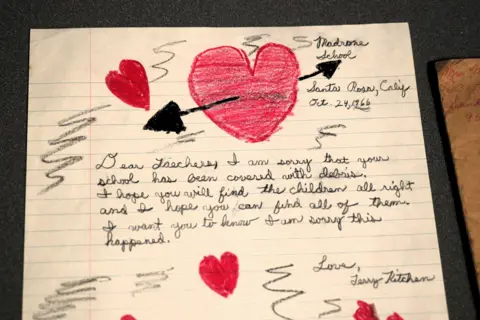 Madrone
School
Santa Rosa, Calif
Oct. 24, 1966
Dear Teachers, I am sorry that your
school has been covered with debris.
I hope you will find the children all right
and I hope you can find all of them.
I want you to know I am sorry this
happened.
Love,
Terry Kitchen